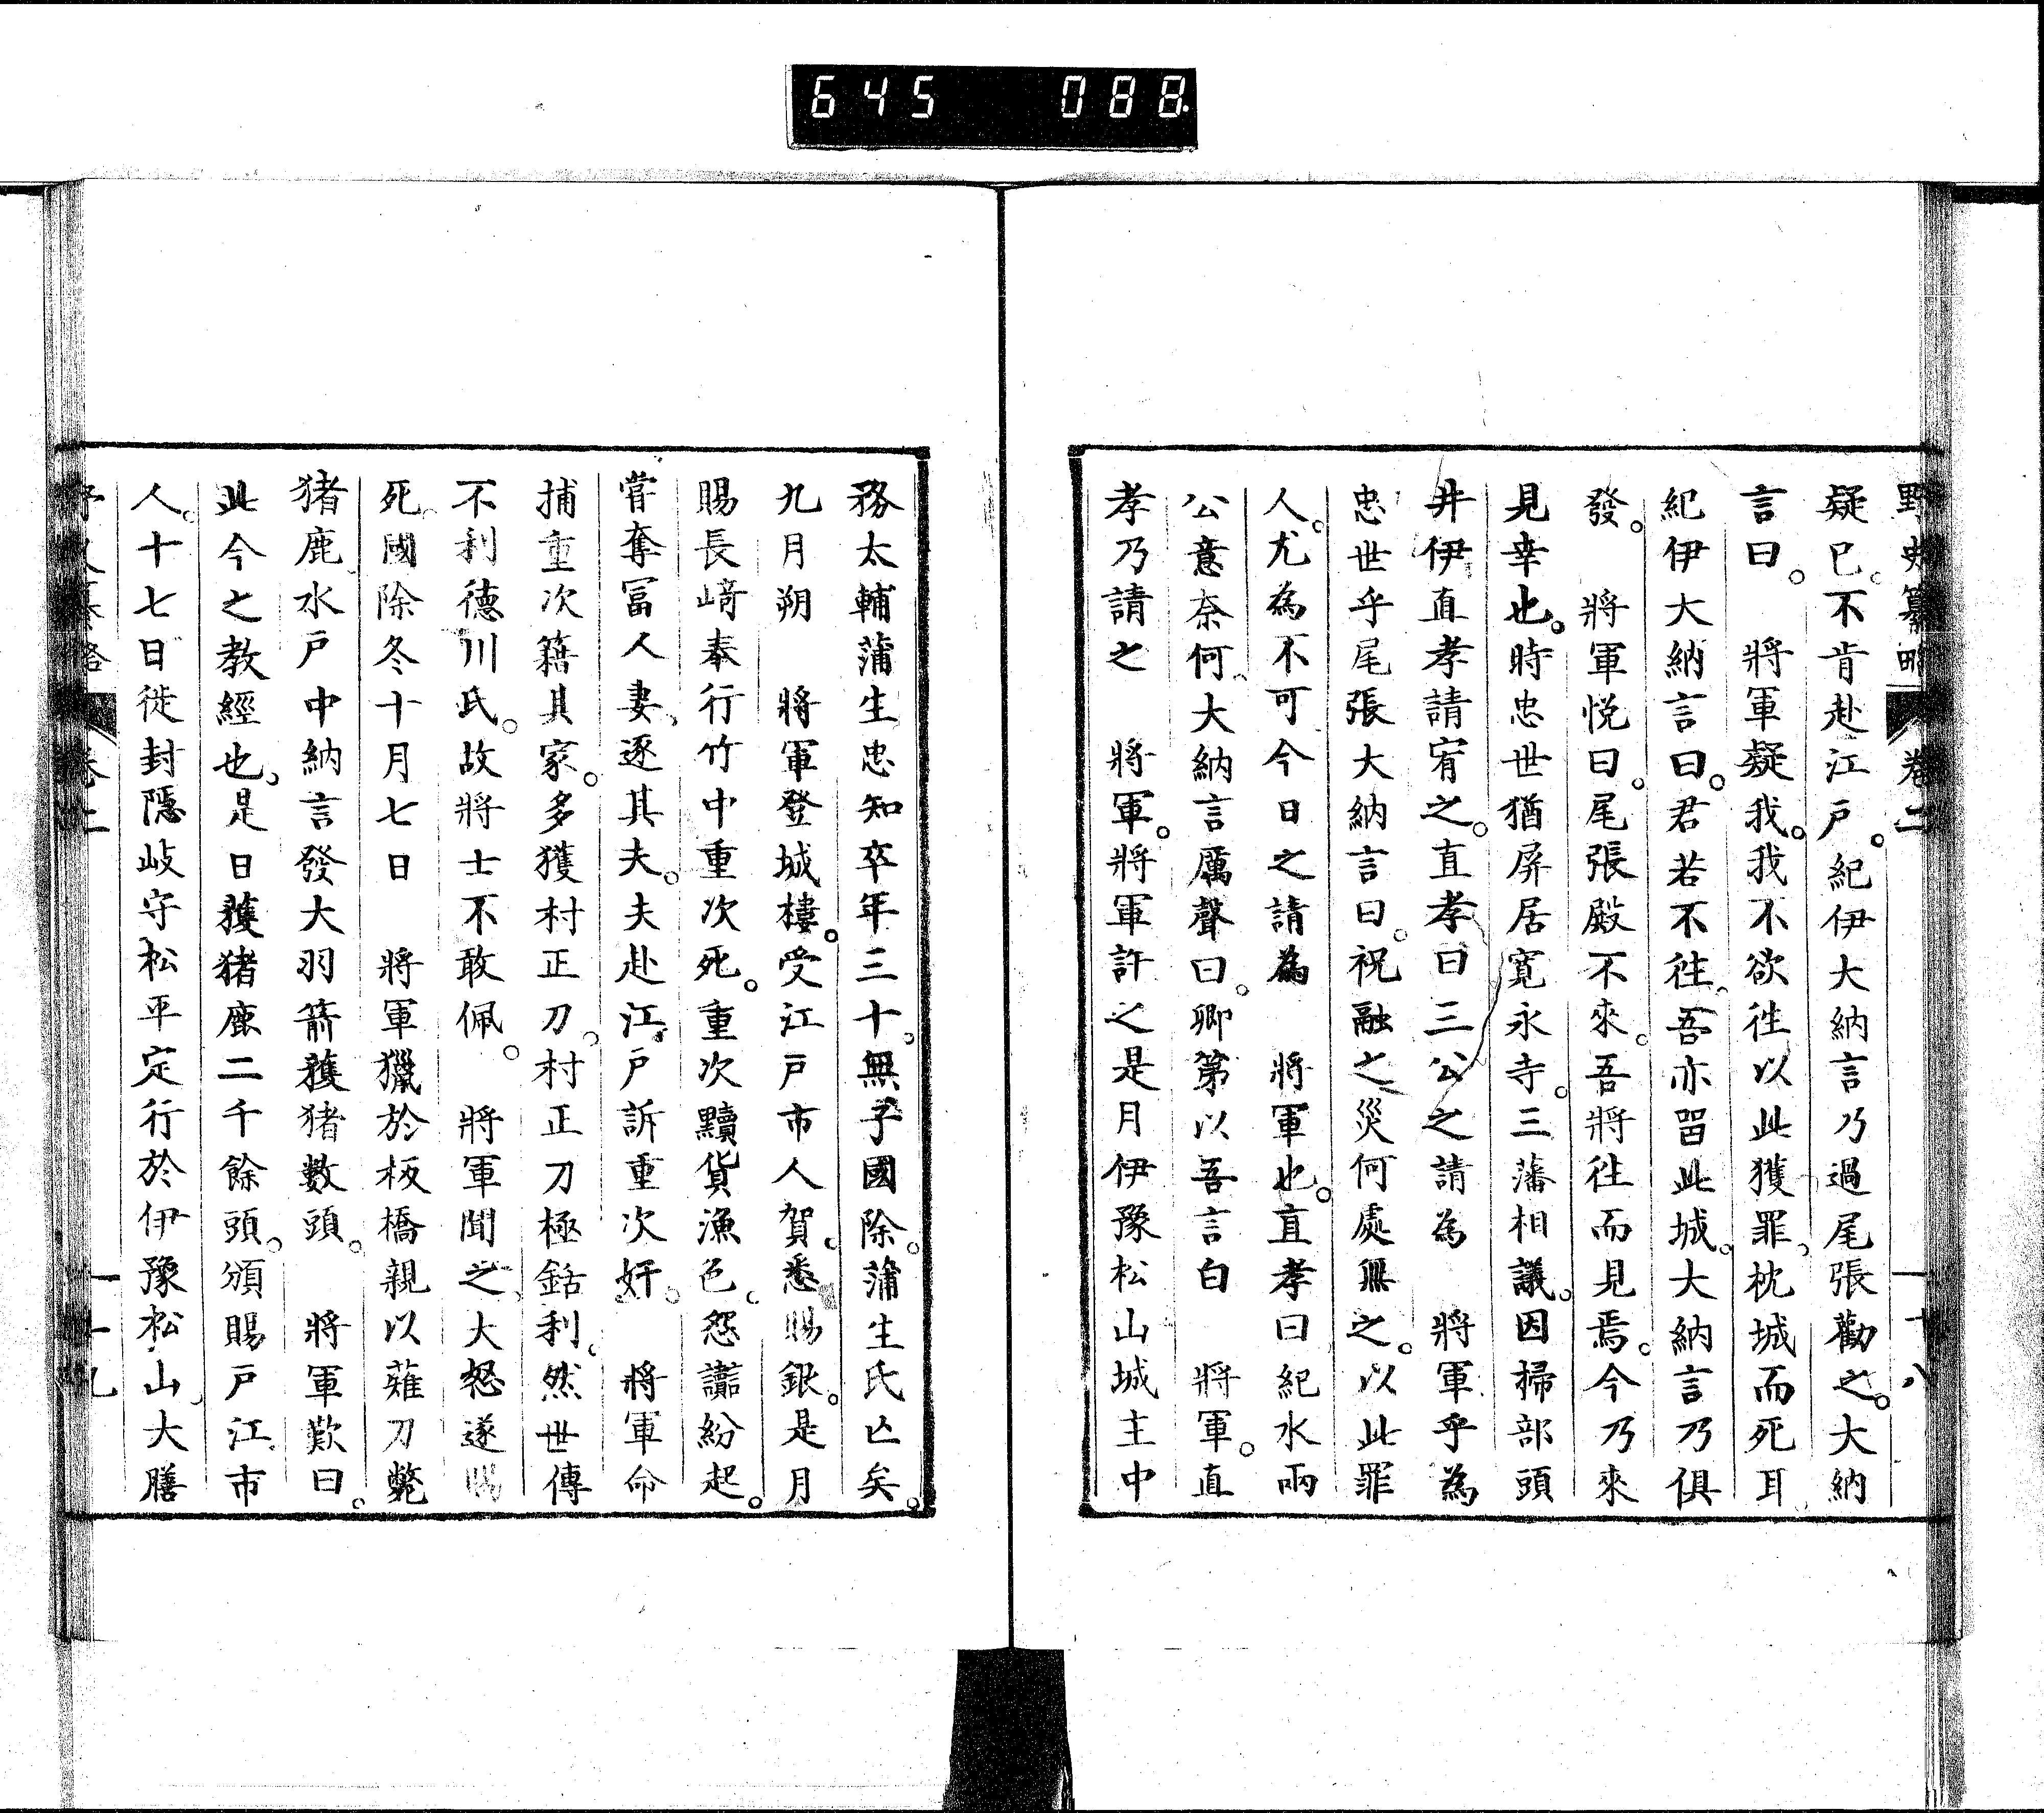 645 088
野史纂略 卷二 十八
疑已。不肯赴江戶。紀伊大納言乃過尾張勸之。大納
言曰。 將軍疑我。我不欲往以此獲罪、枕城而死耳、
紀伊大納言曰。君若不往、吾亦畄此城。大納言乃俱
發。 將軍悅曰。尾張殿不來。吾將往而見焉。今乃來
見幸也。時忠世猶屏居寬永寺。三藩相議。因掃部頭
井伊直孝請宥之。直孝曰三公之請為 將軍乎為
忠世乎尾張大納言曰。祝融之災何處無之。以此罪
人。尤為不可今日之請為 將軍也。直孝曰紀水兩
公意奈何、大納言厲聲曰。卿第以吾言白 將軍。直
孝乃請之 將軍。將軍許之是月伊豫松山城主中
務太輔蒲生忠知卒年三十、無子國除。蒲生氏亡矣。
九月朔 將軍登城樓。受江戶市人賀。悉賜銀。是月
賜長﨑奉行竹中重次死。重次黷貨漁色。怨讟紛起。
嘗奪冨人妻、逐其夫。夫赴江戶訴重次奸。 將軍命
捕重次籍其家。多獲村正刀。村正刀極銛利。然世傳
不利德川氏。故將士不敢佩。 將軍聞之、大怒遂賜
死。國除冬十月七日 將軍獵於板橋親以薙刀斃
猪鹿、水戶中納言發大羽箭獲猪數頭。 將軍歎曰。
此今之教經也。是日獲猪鹿二千餘頭。頒賜戶江市
人。十七日徙封隱岐守松平定行於伊豫松山、大膳
野史纂略 卷二 十九